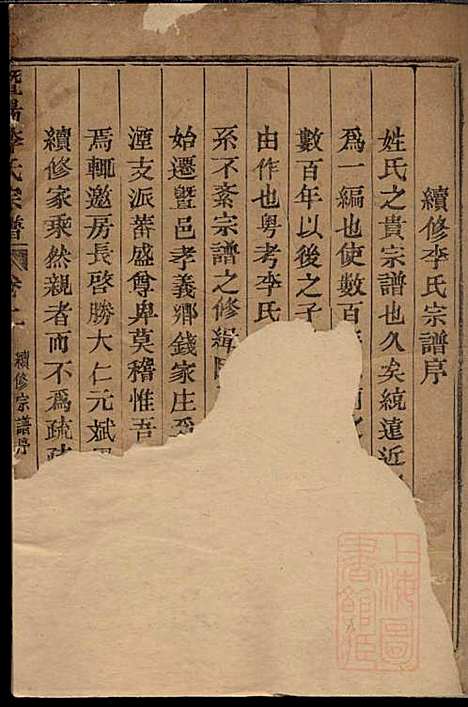 續修李氏宗譜序
姓氏之貴宗譜也久矣統遠近
爲一編也使數百
數百年以後之子
由作也粤考李氏
系不紊宗譜之修緝
始遷暨邑孝義鄉錢家庄爲
湮支派蕃盛尊卑莫稽惟吾
焉輒邀房長啓勝大仁元斌
續修家乘然親者而不爲疏疏
暨陽李氏宗譜 卷之一 續修宗譜序
上海圖書館藏